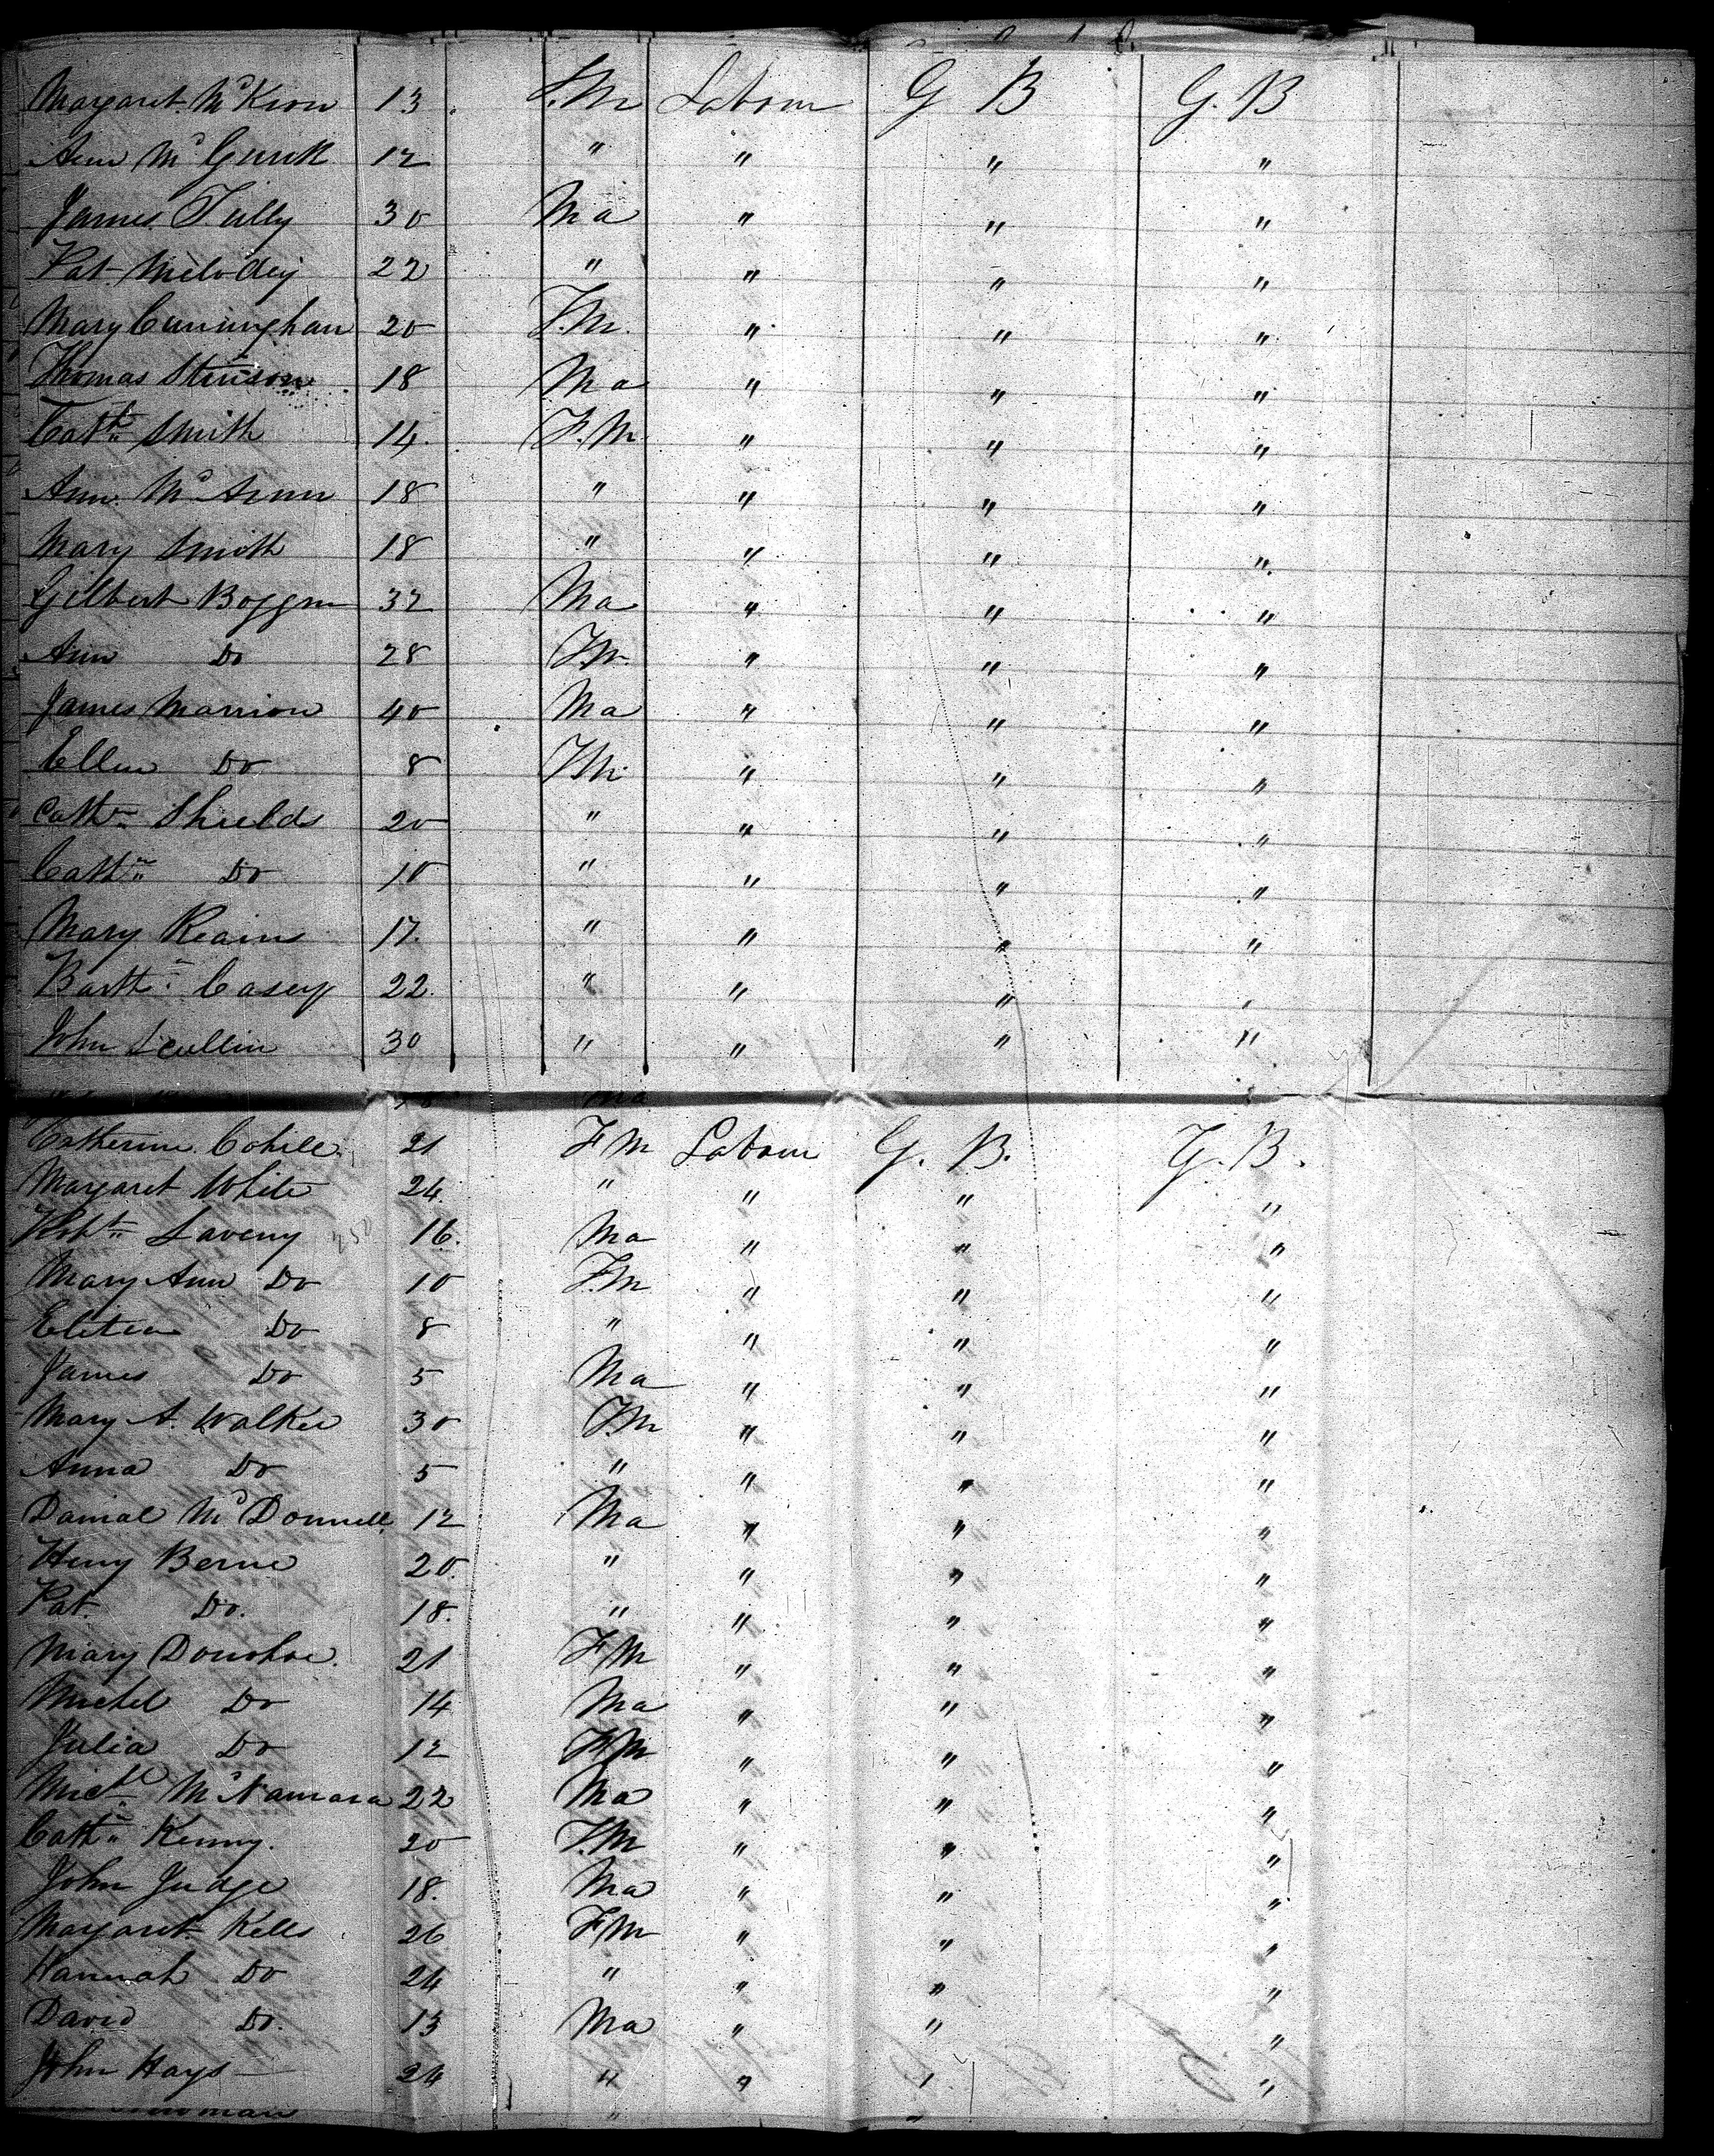 Margaret McKeon 13 F.M Labour G B G. B
Ann McGurk 12 " " " "
James Tully 30 Ma " " "
Pat Melodey 22 " " " "
Mary Cuningham 20 F.M. " " "
Thomas Stinson 18 Ma " " "
Cathn Smith 14 F.M. " " "
Ann McAnn 18 " " " "
Mary Smith 18 " " " "
Gilbert 32 Ma " " "
Ann Do 28 F.M. " " "
James Marrion 40 Ma " " "
Ellen Do 8 F.M. " " "
Cathn Shields 20 " " " "
Cathn Do 10 " " " "
Mary Keains 17 " " " "
Barthw Casey 22 " " " "
John Scullin 30 " " " "
Ma
Catherine Cohill 21 F M Labour G. B. G. B.
Margaret White 24 " " " "
Robt Laveny 16 Ma " " "
Mary Ann Do 10 F.M " " "
Elitia Do 8 " " " "
James Do 5 Ma " " "
Mary A. Walker 30 F.M " " "
Anna Do 5 " " " "
Danial McDonnell 12 Ma " " "
Henry Berne 20 " " " "
Pat Do. 18 " " " "
Mary Donohoe 21 F M " " "
Michel Do 14 Ma " " "
Julia Do 12 F M " " "
Michl McNamara 22 Ma " " "
Cathn Kenny 20 F.M " " "
John Judge 18 Ma " " "
Margaret Kells 26 F M " " "
Hannah Do 24 " " " "
David Do. 13 Ma " " "
John Hays 24 " " " "